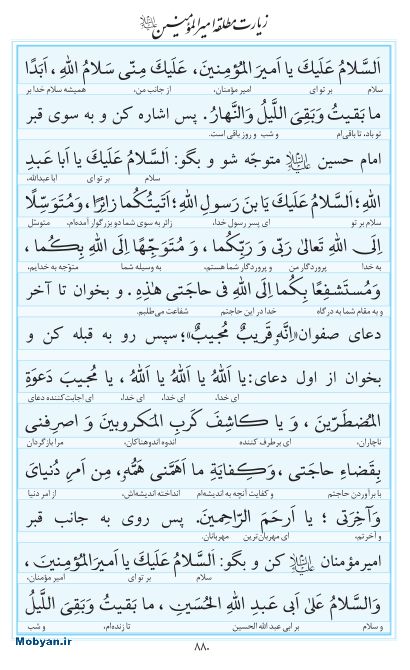 زیارت مطلقه امیرالمؤمنین علیه‌السلام
اَلسَّلامُ عَلَیکَ یا اَمیرَ المُؤمِنینَ، عَلَیکَ مِنّی سَلامُ اللهِ ، اَبَدًا
سلام بر تو ای امیرمؤمنان، از جانب من، همیشه سلام خدا بر
ما بَقیتُ وَبَقِیَ اللَّیلُ وَالنَّهارُ. پس اشاره کن و به سوی قبر
تو باد، تا باقی‌ام و شب و روز باقی است.
امام حسین علیه‌السلام متوجّه شو و بگو: اَلسَّلامُ عَلَیکَ یا اَبا عَبدِ
سلام بر تو ای اباعبدالله،
اللهِ؛ اَلسَّلامُ عَلَیکَ یَا بنَ رَسولِ اللهِ؛ اَتَیتُکُما زائِرًا ، وَمُتَوَسِّلًا
سلام بر تو ای پسر رسول خدا، زائر به سوی شما دو بزرگوار آمده‌ام، متوسّل
اِلَی اللهِ تَعالیٰ رَبّی وَ رَبِّکُما ، وَ مُتَوَجِّهًا اِلَی اللهِ بِکُما ،
به خدا پروردگار من و پروردگار شما هستم، به وسیله شما متوّجه به خدایم،
وَمُستَشفِعًا بِکُما اِلَی اللهِ فی حاجَتی هٰذِهِ . و بخوان تا آخر
و به مقام شما به درگاه خدا در این حاجتم شفاعت می‌طلبم.
دعای صفوان «اِنَّهُ قَریبٌ مُجیبٌ»؛ سپس رو به قبله کن و
بخوان از اول دعای: یا اَللهُ یا اَللهُ یا اَللهُ ، یا مُجیبَ دَعوَةِ
ای خدا، ای خدا، ای خدا، ای اجابت‌کننده دعای
المُضطَرّینَ ، وَ یا کاشِفَ کَربِ المَکروبینَ وَ اصرِفنی
ناچاران، ای برطرف کننده اندوه اندوهناکان، مرا بازگردان
بِقَضاءِ حاجَتی ، وَکِفایَةِ ما اَهَمَّنی هَمُّهُ، مِن اَمرِ دُنیایَ
با برآوردن حاجتم و کفایت آنچه به اندیشه‌ام انداخته اندیشه‌اش، از امر دنیا
وَآخِرَتی ؛ یا اَرحَمَ الرّاحِمینَ. پس روی به جانب قبر
و آخرتم، ای مهربان‌ترین مهربانان.
امیرمؤمنان علیه‌السلام کن و بگو: اَلسَّلامُ عَلَیکَ یا اَمیرَ المُؤمِنینَ ،
سلام بر تو ای امیر مؤمنان،
وَالسَّلامُ عَلیٰ اَبی عَبدِ اللهِ الحُسَینِ ، ما بَقیتُ وَبَقِیَ اللَّیلُ
و سلام بر ابی عبد الله الحسین تا زنده‌ام، و شب
۸۸۰
Mobyan.ir